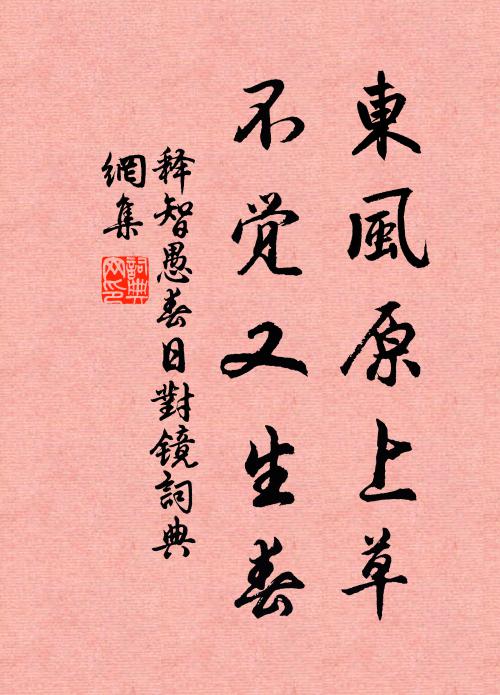 東風原上草
不觉又生春
释智愚春日對镜詞典
網集
詞典網印